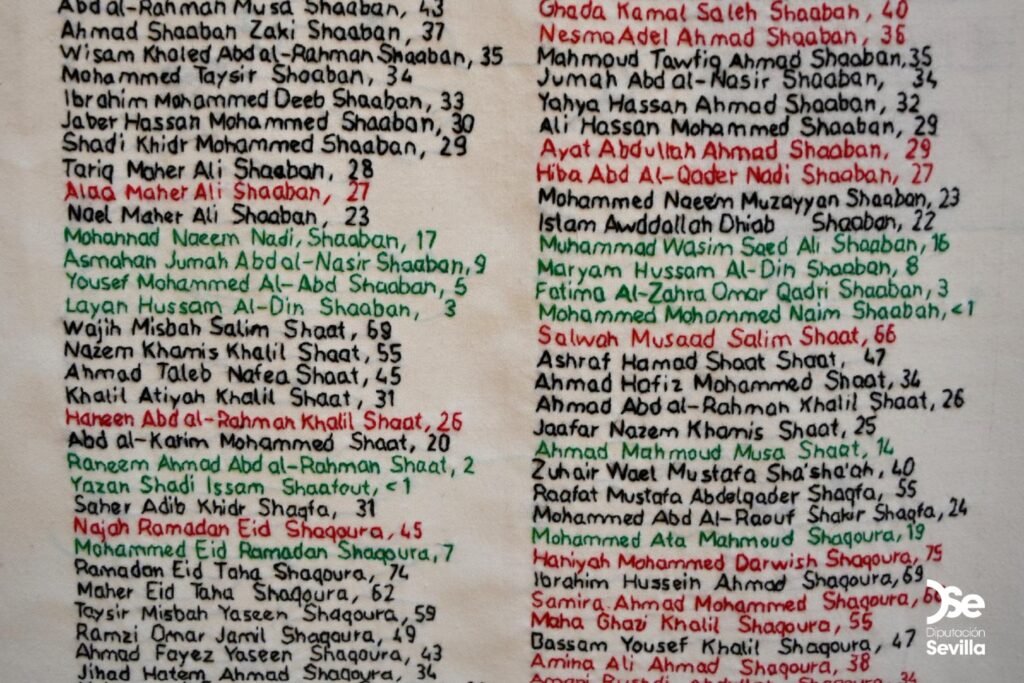 Abd al-Rahman Musa Shaaban, 43
Ahmad Shaaban Zaki Shaaban, 37
Wisam Khaled Abd al-Rahman Shaaban, 35
Mohammed Taysir Shaaban, 34
Ibrahim Mohammed Deeb Shaaban, 33
Jaber Hassan Mohammed Shaaban, 30
Shadi Khidr Mohammed Shaaban, 29
Tariq Maher Ali Shaaban, 28
Alaa Maher Ali Shaaban, 27
Nael Maher Ali Shaaban, 23
Mohannad Naeem Nadi, Shaaban, 17
Asmahan Jumah Abd al-Nasir Shaaban, 9
Yousef Mohammed Al-Abd Shaaban, 5
Layan Hussam Al-Din Shaaban, 3
Wajih Misbah Salim Shaat, 69
Nazem Khamis Khalil Shaat, 55
Ahmad Taleb Nafea Shaat, 45
Khalil Atiyah Khalil Shaat, 31
Haneen Abd al-Rahman Khalil Shaat, 26
Abd al-Karim Mohammed Shaat, 20
Raneem Ahmad Abd al-Rahman Shaat, 2
Yazan Shadi Issam Shaafout, <1
Saher Adib Khidr Shaqfa, 31
Najah Ramadan Eid Shaqoura, 45
Mohammed Eid Ramadan Shaqoura, 7
Ramadan Eid Taha Shaqoura, 74
Maher Eid Taha Shaqoura, 62
Taysir Misbah Yaseen Shaqoura, 59
Ramzi Omar Jamil Shaqoura, 49
Ahmad Fayez Yaseen Shaqoura, 43
Jihad Hatem Ahmad Shaqoura, 34
Ghada Kamal Saleh Shaaban, 40
Nesma Adel Ahmad Shaaban, 36
Mahmoud Tawfiq Ahmad Shaaban, 35
Jumah Abd al-Nasir Shaaban, 34
Yahya Hassan Ahmad Shaaban, 32
Ali Hassan Mohammed Shaaban, 29
Ayat Abdullah Ahmad Shaaban, 29
Hiba Abd Al-Qader Nadi Shaaban, 27
Mohammed Naeem Muzayyan Shaaban, 23
Islam Awddallah Dhiab Shaaban, 22
Muhammad Wasim Saed Ali Shaaban, 16
Maryam Hussam Al-Din Shaaban, 8
Fatima Al-Zahra Omar Qadri Shaaban, 3
Mohammed Mohommed Naim Shaabah, <1
Salwah Musaad Salim Shaat, 66
Ashraf Hamad Shaat Shaat, 47
Ahmad Hafiz Mohammed Shaat, 34
Ahmad Abd al-Rahman Khalil Shaat, 26
Jaafar Nazem Khamis Shaat, 25
Ahmad Mahmoud Musa Shaat, 14
Zuhair Wael Mustafa Sha'sha'ah, 40
Raafat Mustafa Abdelqader Shaqfa, 55
Mohammed Abd Al-Raouf Shakir Shaqfa, 24
Mohammed Ata Mahmoud Shaqoura, 19
Haniyah Mohammed Darwish Shaqoura, 75
Ibrahim Hussein Ahmad Shaqoura, 69
Samira Ahmad Mohammed Shaqoura,
Maha Ghazi Khalil Shaqoura, 55
Bassam Yousef Khalil Shaqoura, 47
Amina Ali Ahmad Shaqoura, 38
DSe
Diputación
Sevilla